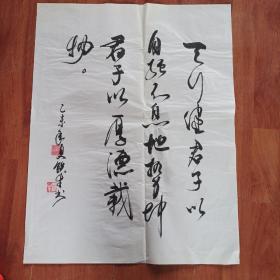 天行健君子以
自强不息地势坤
君子以厚德载
物。
乙未年夏